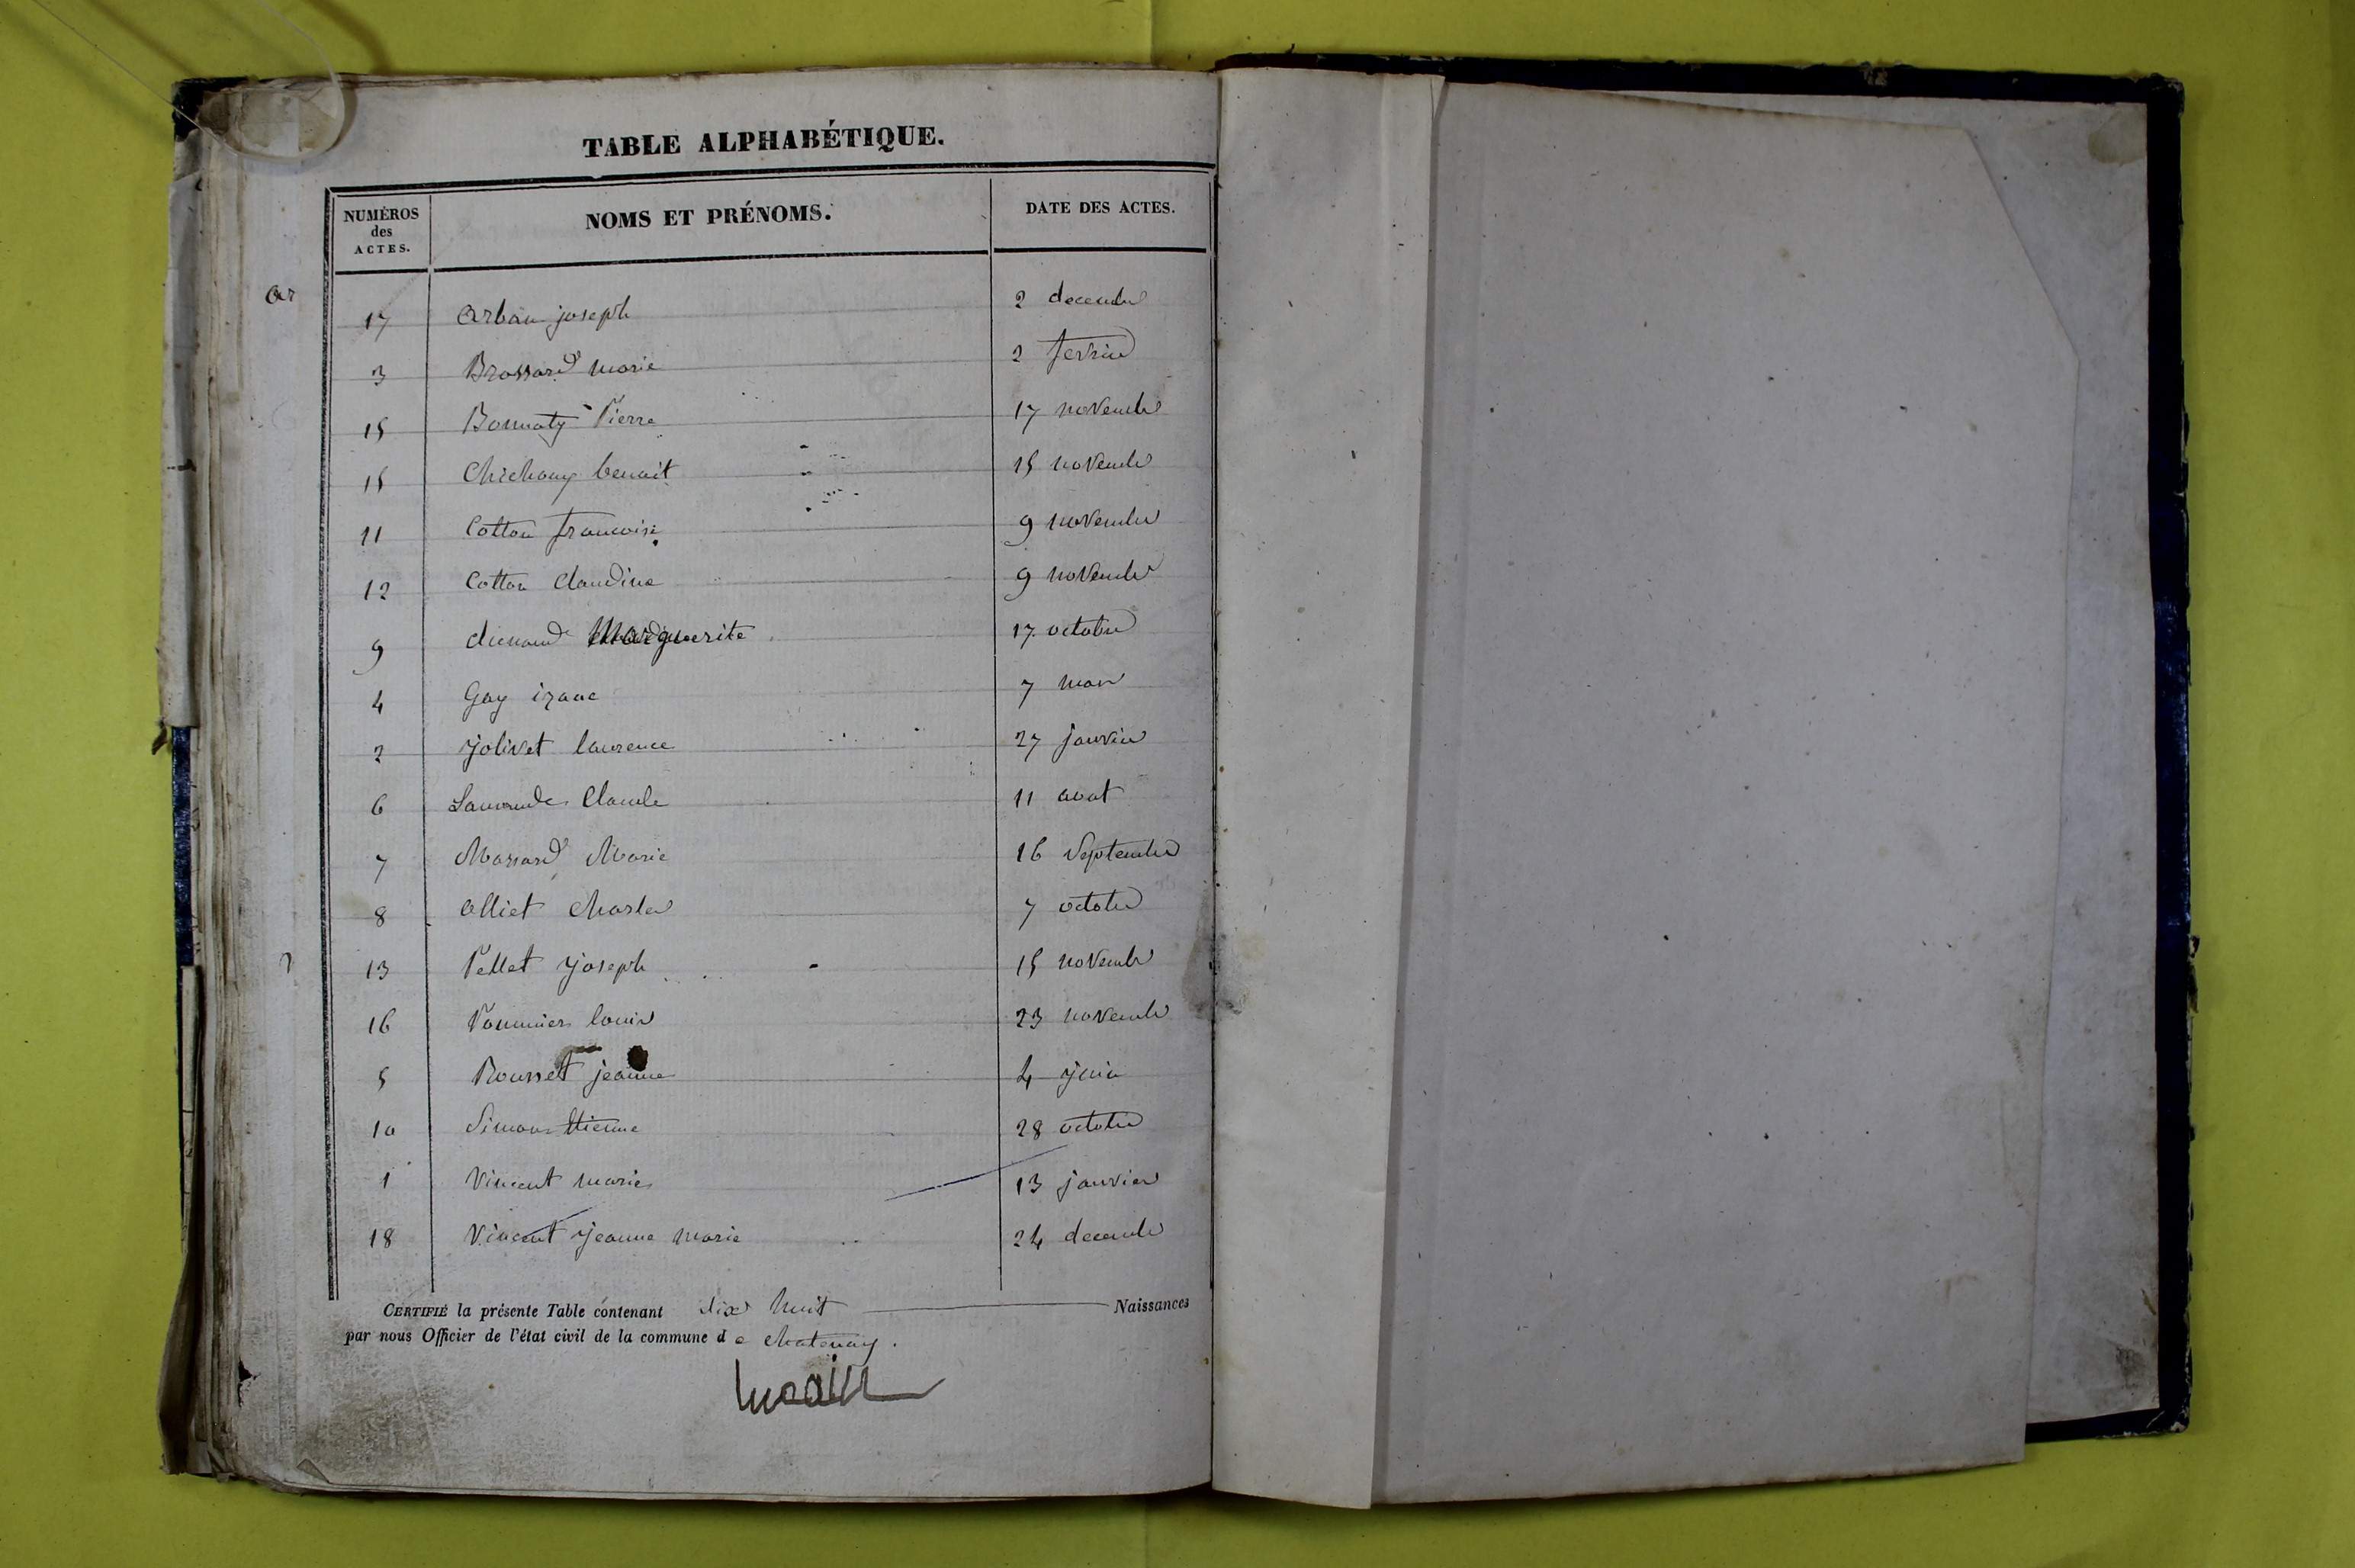 TABLE ALPHABÉTIQUE.
NUMÉROS des ACTES. NOMS ET PRÉNOMS. DATE DES ACTES.
ar
17 arban joseph 2 decembre
3 Brossard marie 2 fevrier
15 Pierre 17 novembre
15 benoit 15 novembre
11 Cotton francoise 9 novembre
12 Cotton Claudine 9 novembre
9 Marguerite 17 octobre
4 Gay izaac 7 mars
2 jolivet laurence 27 janvier
6 Claude 11 aout
7 Massard Marie 16 Septembre
8 olliet charles 7 octobre
13 Pellet joseph 15 novembre
16 Pommier louis 23 novembre
5 Rousset jeanne 4 juin
10 Simon Etienne 28 octobre
1 Vincent marie 13 janvier
18 Vincent jeanne marie 24 decembre
CERTIFIÉ la présente Table contenant dix huit Naissances
par nous Officier de l'état civil de la commune de chatenay.